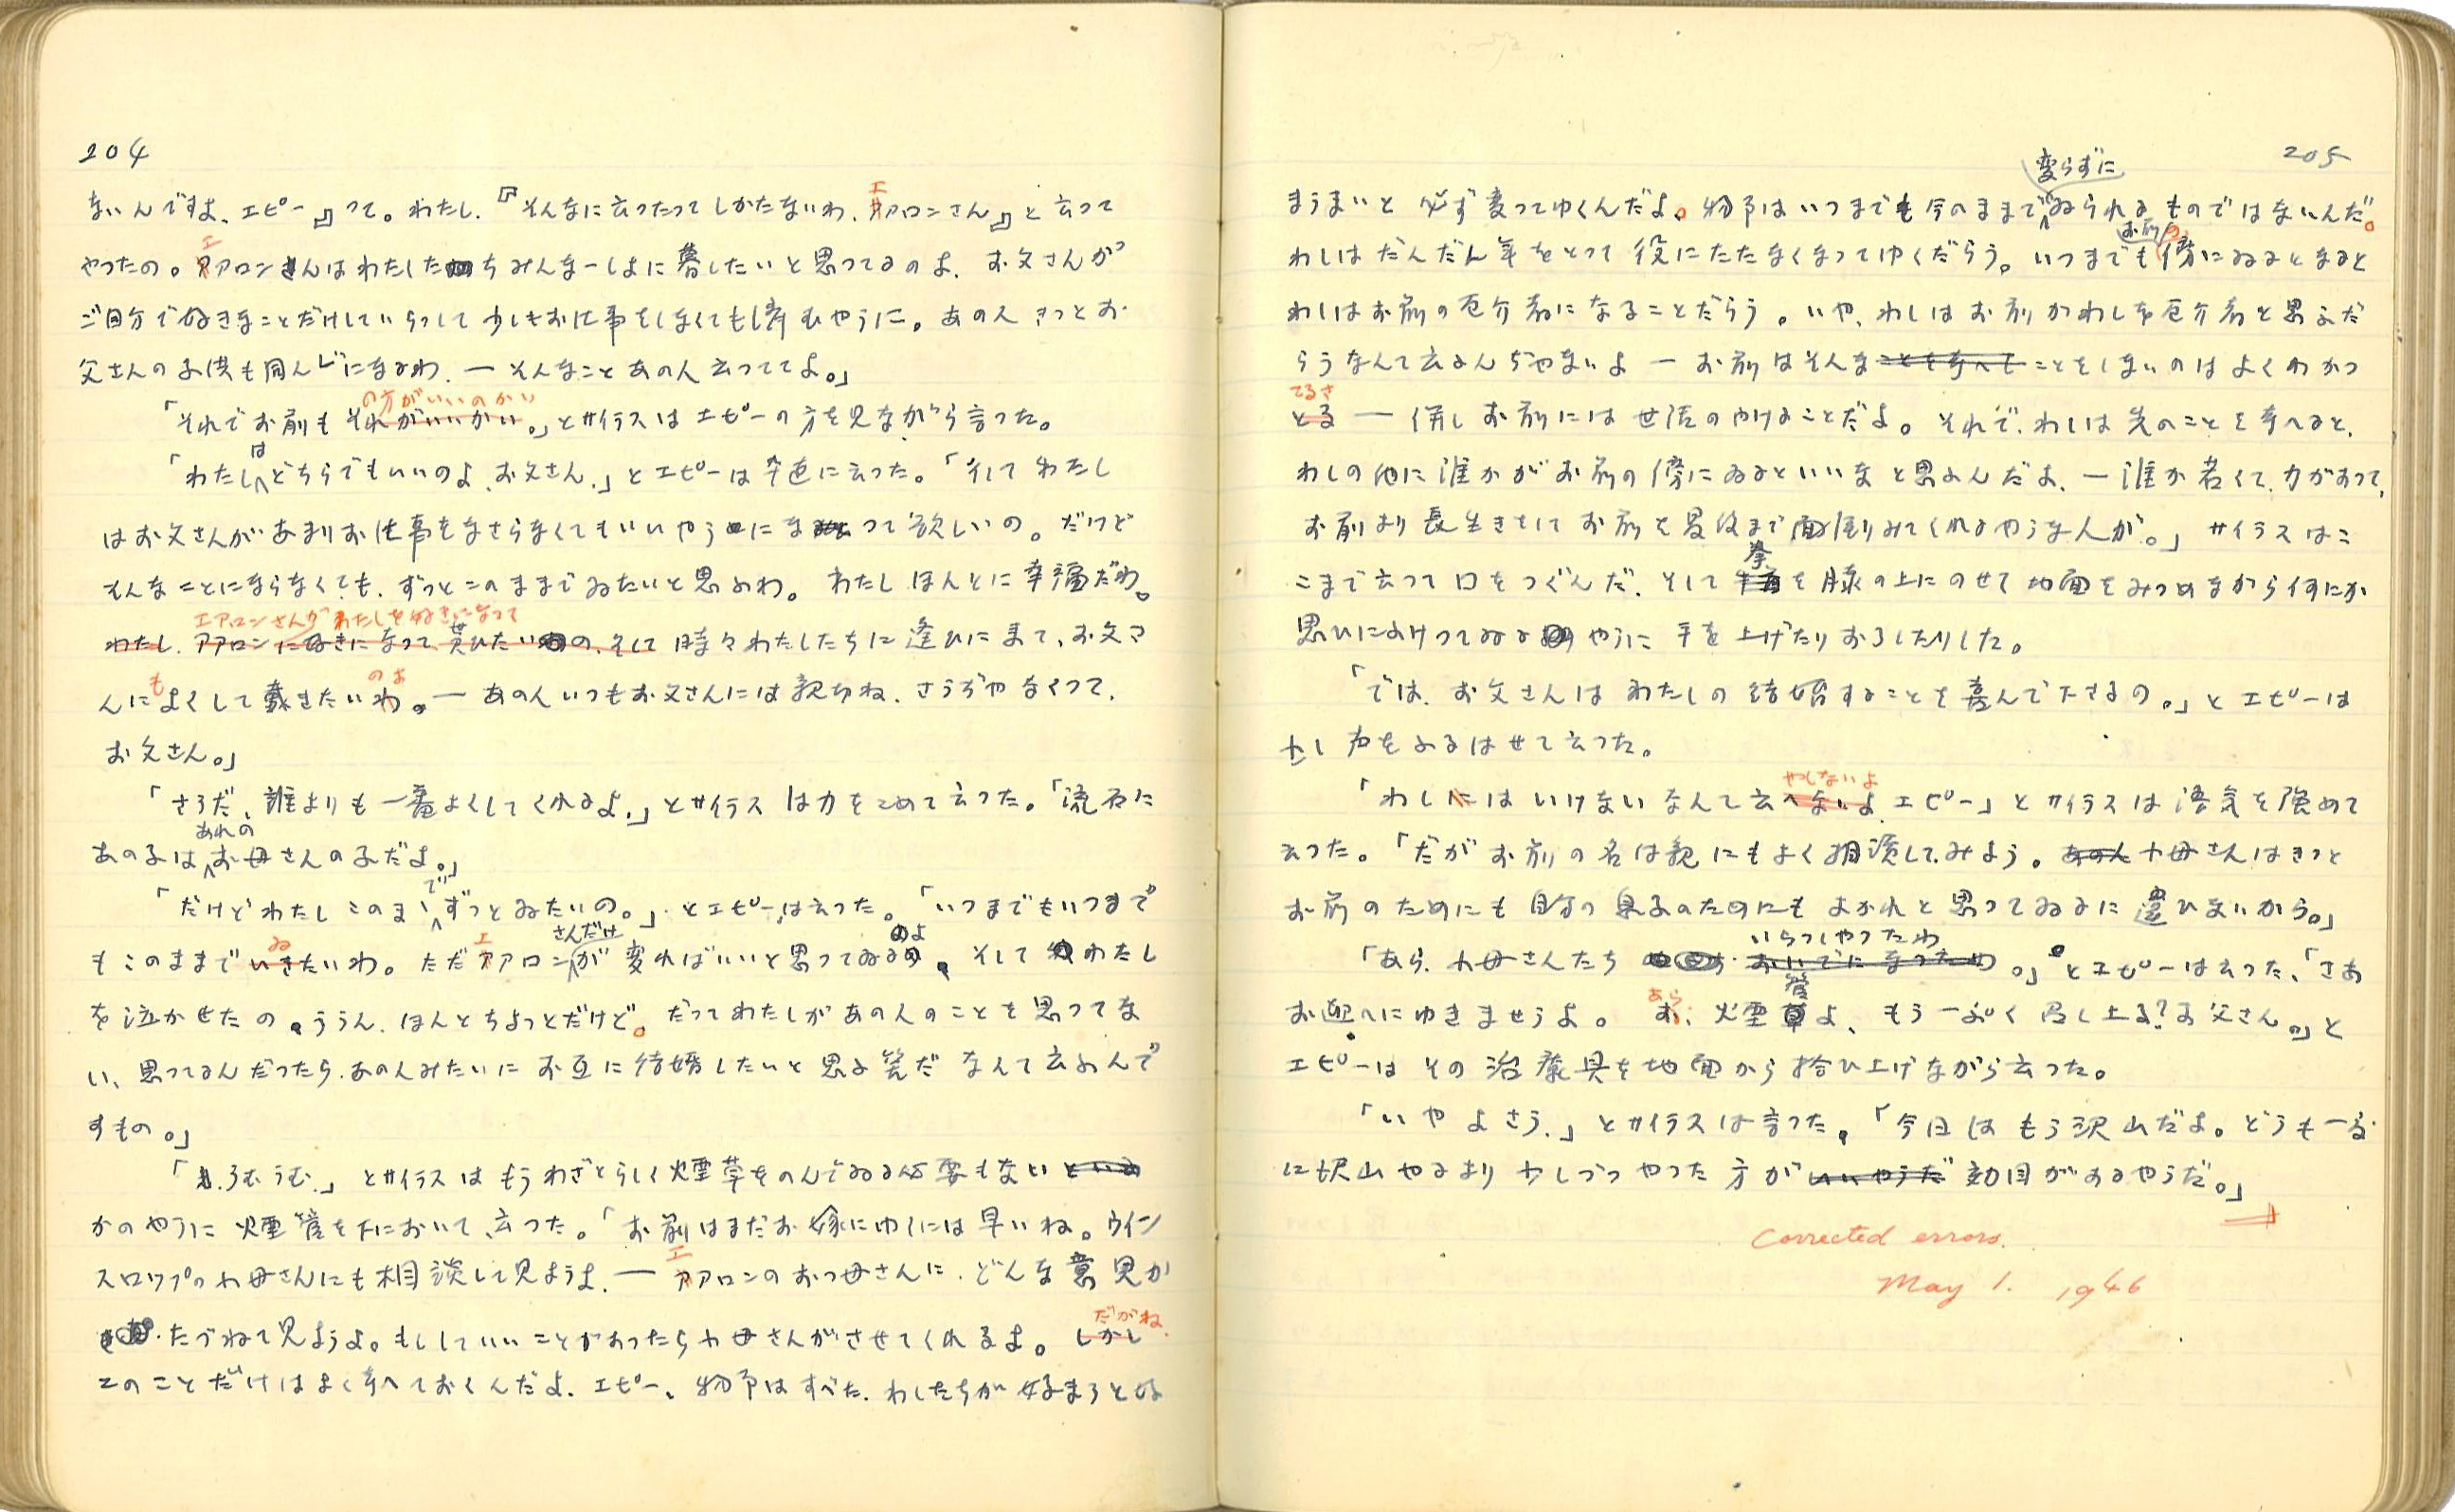 204
ないんですよ、エピー』って。わたし、『そんなに云つたつてしかたないわ、エアロンさん』と云つて
やつたの。エアロンさんはわたしたちみんな一しよに暮したいと思つてるのよ、お父さんが
ご自分で好きなことだけしていらつして少しもお仕事をしなくても済むやうに。あの人きつとお
父さんの子供も同んじになるわ、ーそんなことあの人云つててよ。」
の方がいいのかい
「それでお前もそれがいいかい。」とサイラスはエピーの方を見ながら言つた。
は
「わたしどちらでもいいのよ、お父さん、」とエピーは卒直に云つた。「そしてわたし
はお父さんがあまりお仕事をなさらなくてもいいやうになつて欲しいの。だけど
そんなことにならなくても、ずつとこのままでゐたいと思ふわ。わたしほんとに幸福だわ。
エアロンさんがわたしを好きになつて
わたし、アアロンに好きになつて貰ひたいの、そして時々わたしたちに逢ひにきて、お父さ
も のよ
んによくして戴きたいわ。ーあの人いつもお父さんには親切ね、さうぢやなくつて、
お父さん。」
「さうだ、誰よりも一番よくしてくれるよ、」とサイラスは力をこめて云つた。「流石に
あれの
あの子はお母さんの子だよ。」
で
「だけどわたしこのまゝずつとゐたいの。」とエピーは云つた。「いつまでもいつまで
ゐ エ さんだけ のよ
もこのままでいきたいわ。ただアアロンが変ればいいと思つてゐる。そしてわたし
を泣かせたの。ううん、ほんとちよつとだけど。だつてわたしがあの人のことを思つてな
い、思つてるんだつたら、あの人みたいにお互に結婚したいと思ふ筈だなんて云ふんで
すもの。」
「うむうむ、」とサイラスはもうわざとらしく煙草をのんでゐる必要もないといふ
かのやうに煙管を下において、云つた。「お前はまだお嫁にゆくには早いね。ウイン
スロツプのお母さんにも相談して見ようよ、ーエアロンのおつ母さんに、どんな意見か
だがね、
たづねて見ようよ。もししていいことがあつたらお母さんがさせてくれるよ。しかし
このことだけはよく考へておくんだよ、エピー、物事はすべた、わしたちが好まうと好
205
変らずに
まうまいと必ず変つてゆくんだよ。物事はいつまでも今のままでゐられるものではないんだ。
お前の
わしはだんだん年をとつて役にたたなくなつてゆくだらう。いつまでも傍にゐるとなると
わしはお前の厄介者になることだらう。いや、わしはお前がわしを厄介者と思ふだ
らうなんて云ふんぢやないよーお前はそんなことを考へてことをしないのはよくわかつ
てるさ
とるー併しお前には世話のやけることだよ。それで、わしは先のことを考へると、
わしの他に誰かがお前の傍にゐるといいなと思ふんだよ、ー誰か若くて、力があつて、
お前より長生きをしてお前を最後まで面倒みてくれるやうな人が。」サイラスはこ
拳
こまで云つて口をつぐんだ、そしてを膝の上にのせて地面をみつめながら何にか
思ひにふけつてゐるやうに手を上げたりおろしたりした。
「では、お父さんはわたしの結婚することを喜んで下さるの。」とエピーは
少し声をふるはせて云つた。
やしないよ
「わしにはいけないなんて云へないよ、エピー」とサイラスは語気を強めて
云つた。「だがお前の名は親にもよく相談してみよう。あの人お母さんはきつと
お前のためにも自分の息子のためにもよかれと思つてゐるに違ひないから。」
いらつしやつたわ
「あら、お母さんたちおいでになつたわ。」とエピーは云つた、「さあ
あら 管
お迎へにゆきませうよ。お、煙草よ、もう一ぷく召し上る?お父さん。」と
エピーはその治療具を地面から拾ひ上げながら云つた。
「いやよさう、」とサイラスは言つた。「今日はもう沢山だよ。どうも一度
に沢山やるより少しづつやつた方がいいやうだ効目があるやうだ。」
Corrected errors.
May 1. 1946